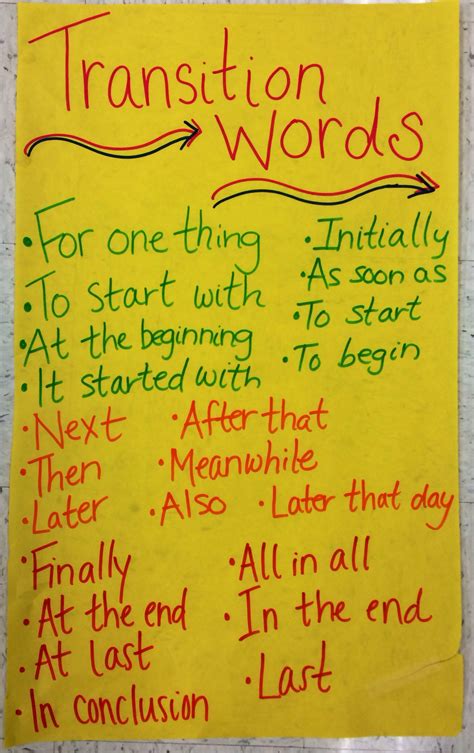 Transition
Words
• For one thing
• To start with
• At the beginning
• It started with
• Initially
• As soon as
• To start
• To begin
• Next
• Then
• Later
• After that
• Meanwhile
• Also
• Later that day
• Finally
• At the end
• At last
• In conclusion
• All in all
• In the end
• Last